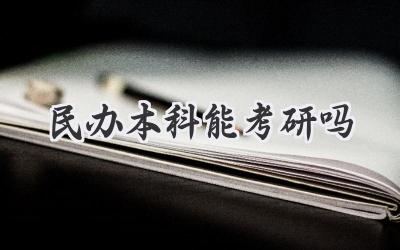 民办本科能考研吗